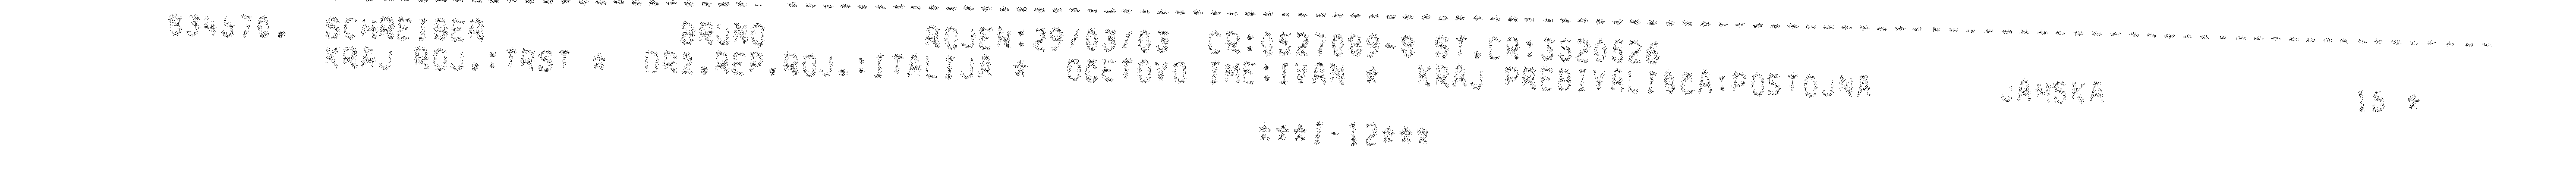 834670. SCHREIBER BRUNO ROJEN:29/03/03 CR:0527089-8 ST.CR:3520526
KRAJ ROJ.:TRST * DRZ.REP.ROJ.:ITALIJA * OCETOVO IME:IVAN * KRAJ PREBIVALISCA:POSTOJNA JAMSKA 15 *
***I-12***